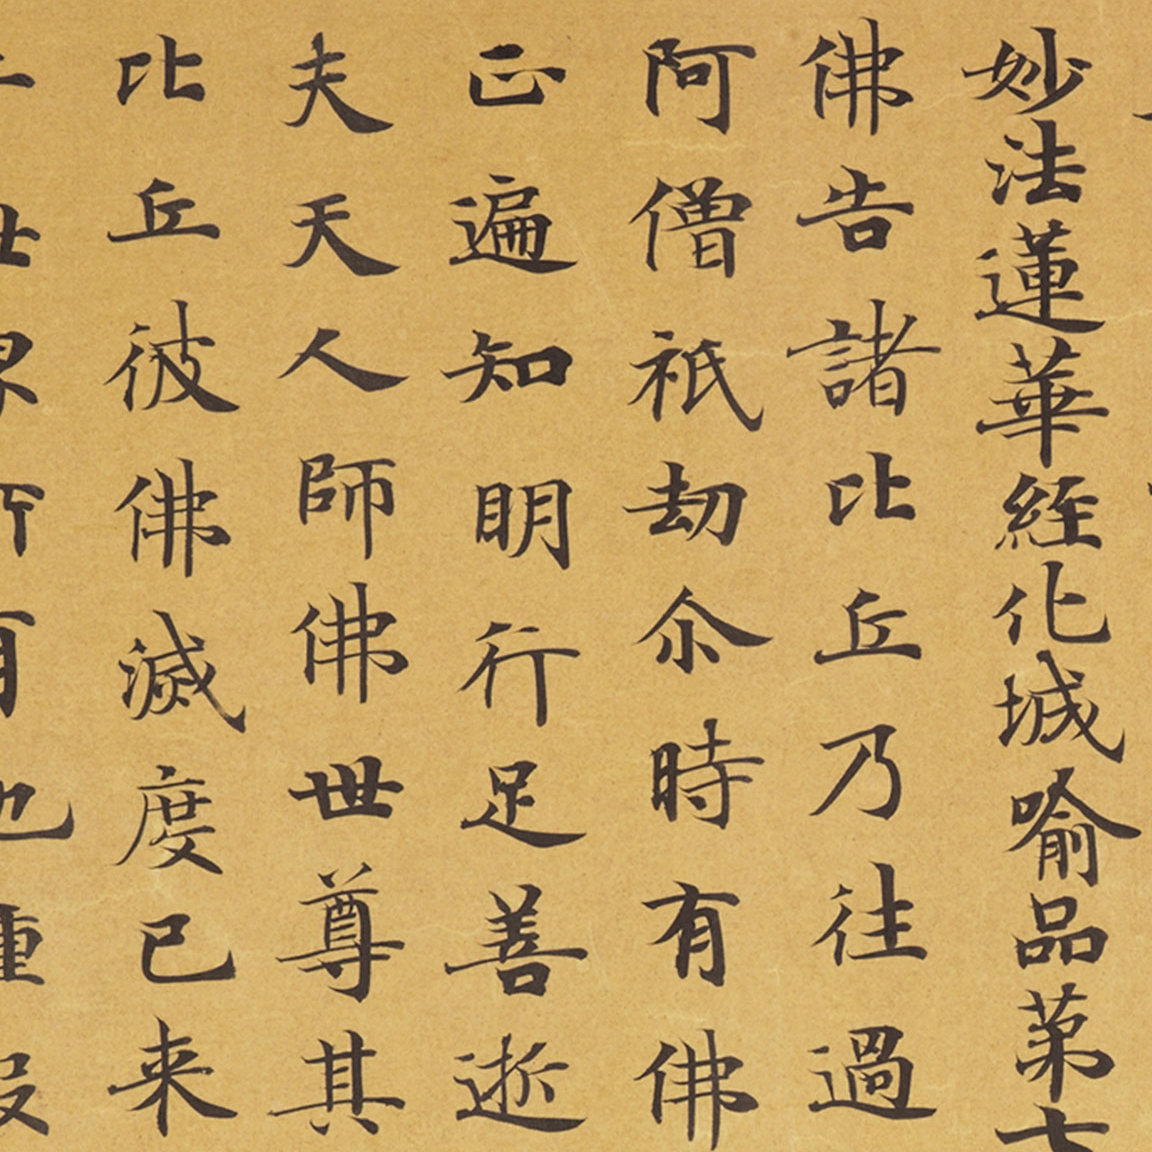 妙法蓮華經化城喻品第七
佛告諸比丘乃往過
阿僧祇劫尒時有佛
正遍知明行足善逝
夫天人師佛世尊其
比丘彼佛滅度已来